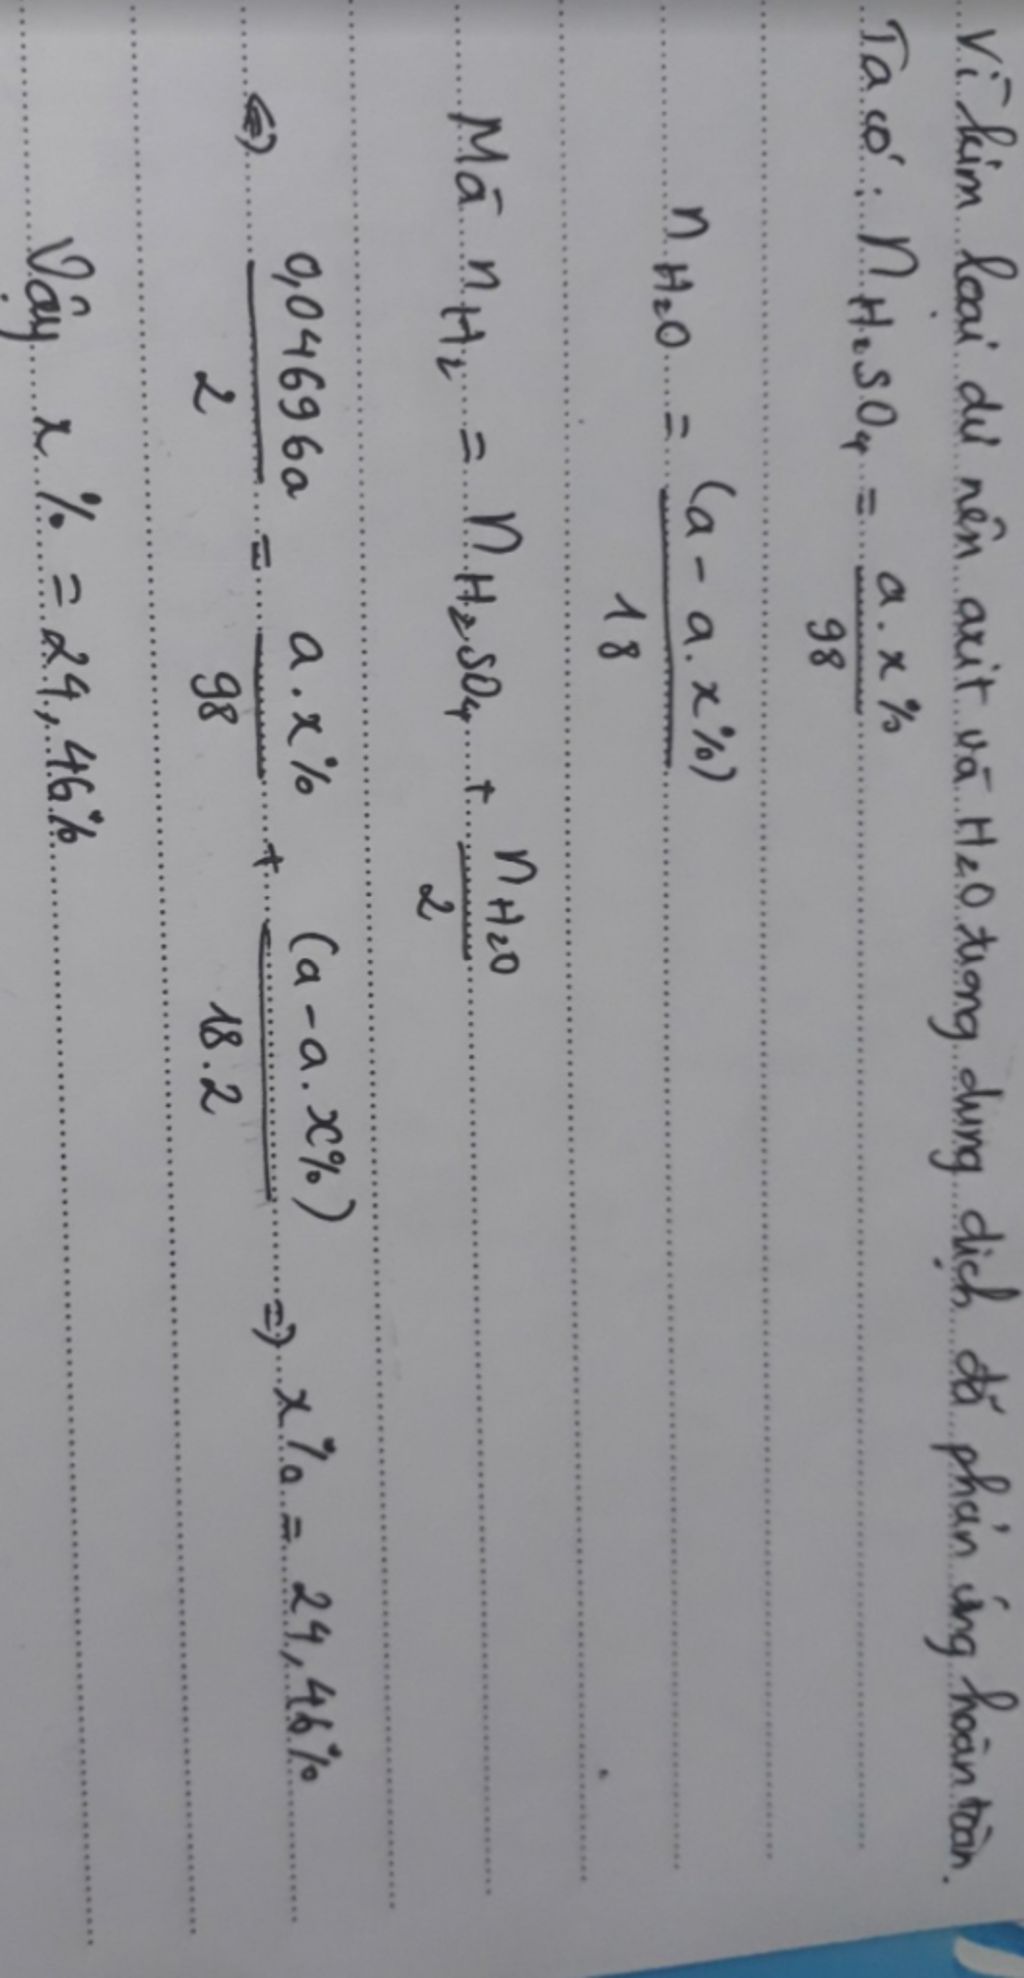 Vì kim loại dư nên axit và H₂O trong dung dịch đã phản ứng hoàn toàn.
Ta có: n H₂SO₄ = a.x% / 98
n H₂O = (a - a.x%) / 18
Mà n H₂ = n H₂SO₄ + n H₂O / 2
⇔ 0,04696a / 2 = a.x% / 98 + (a - a.x%) / 18.2 ⇒ x% = 24,46%
Vậy x% = 24,46%